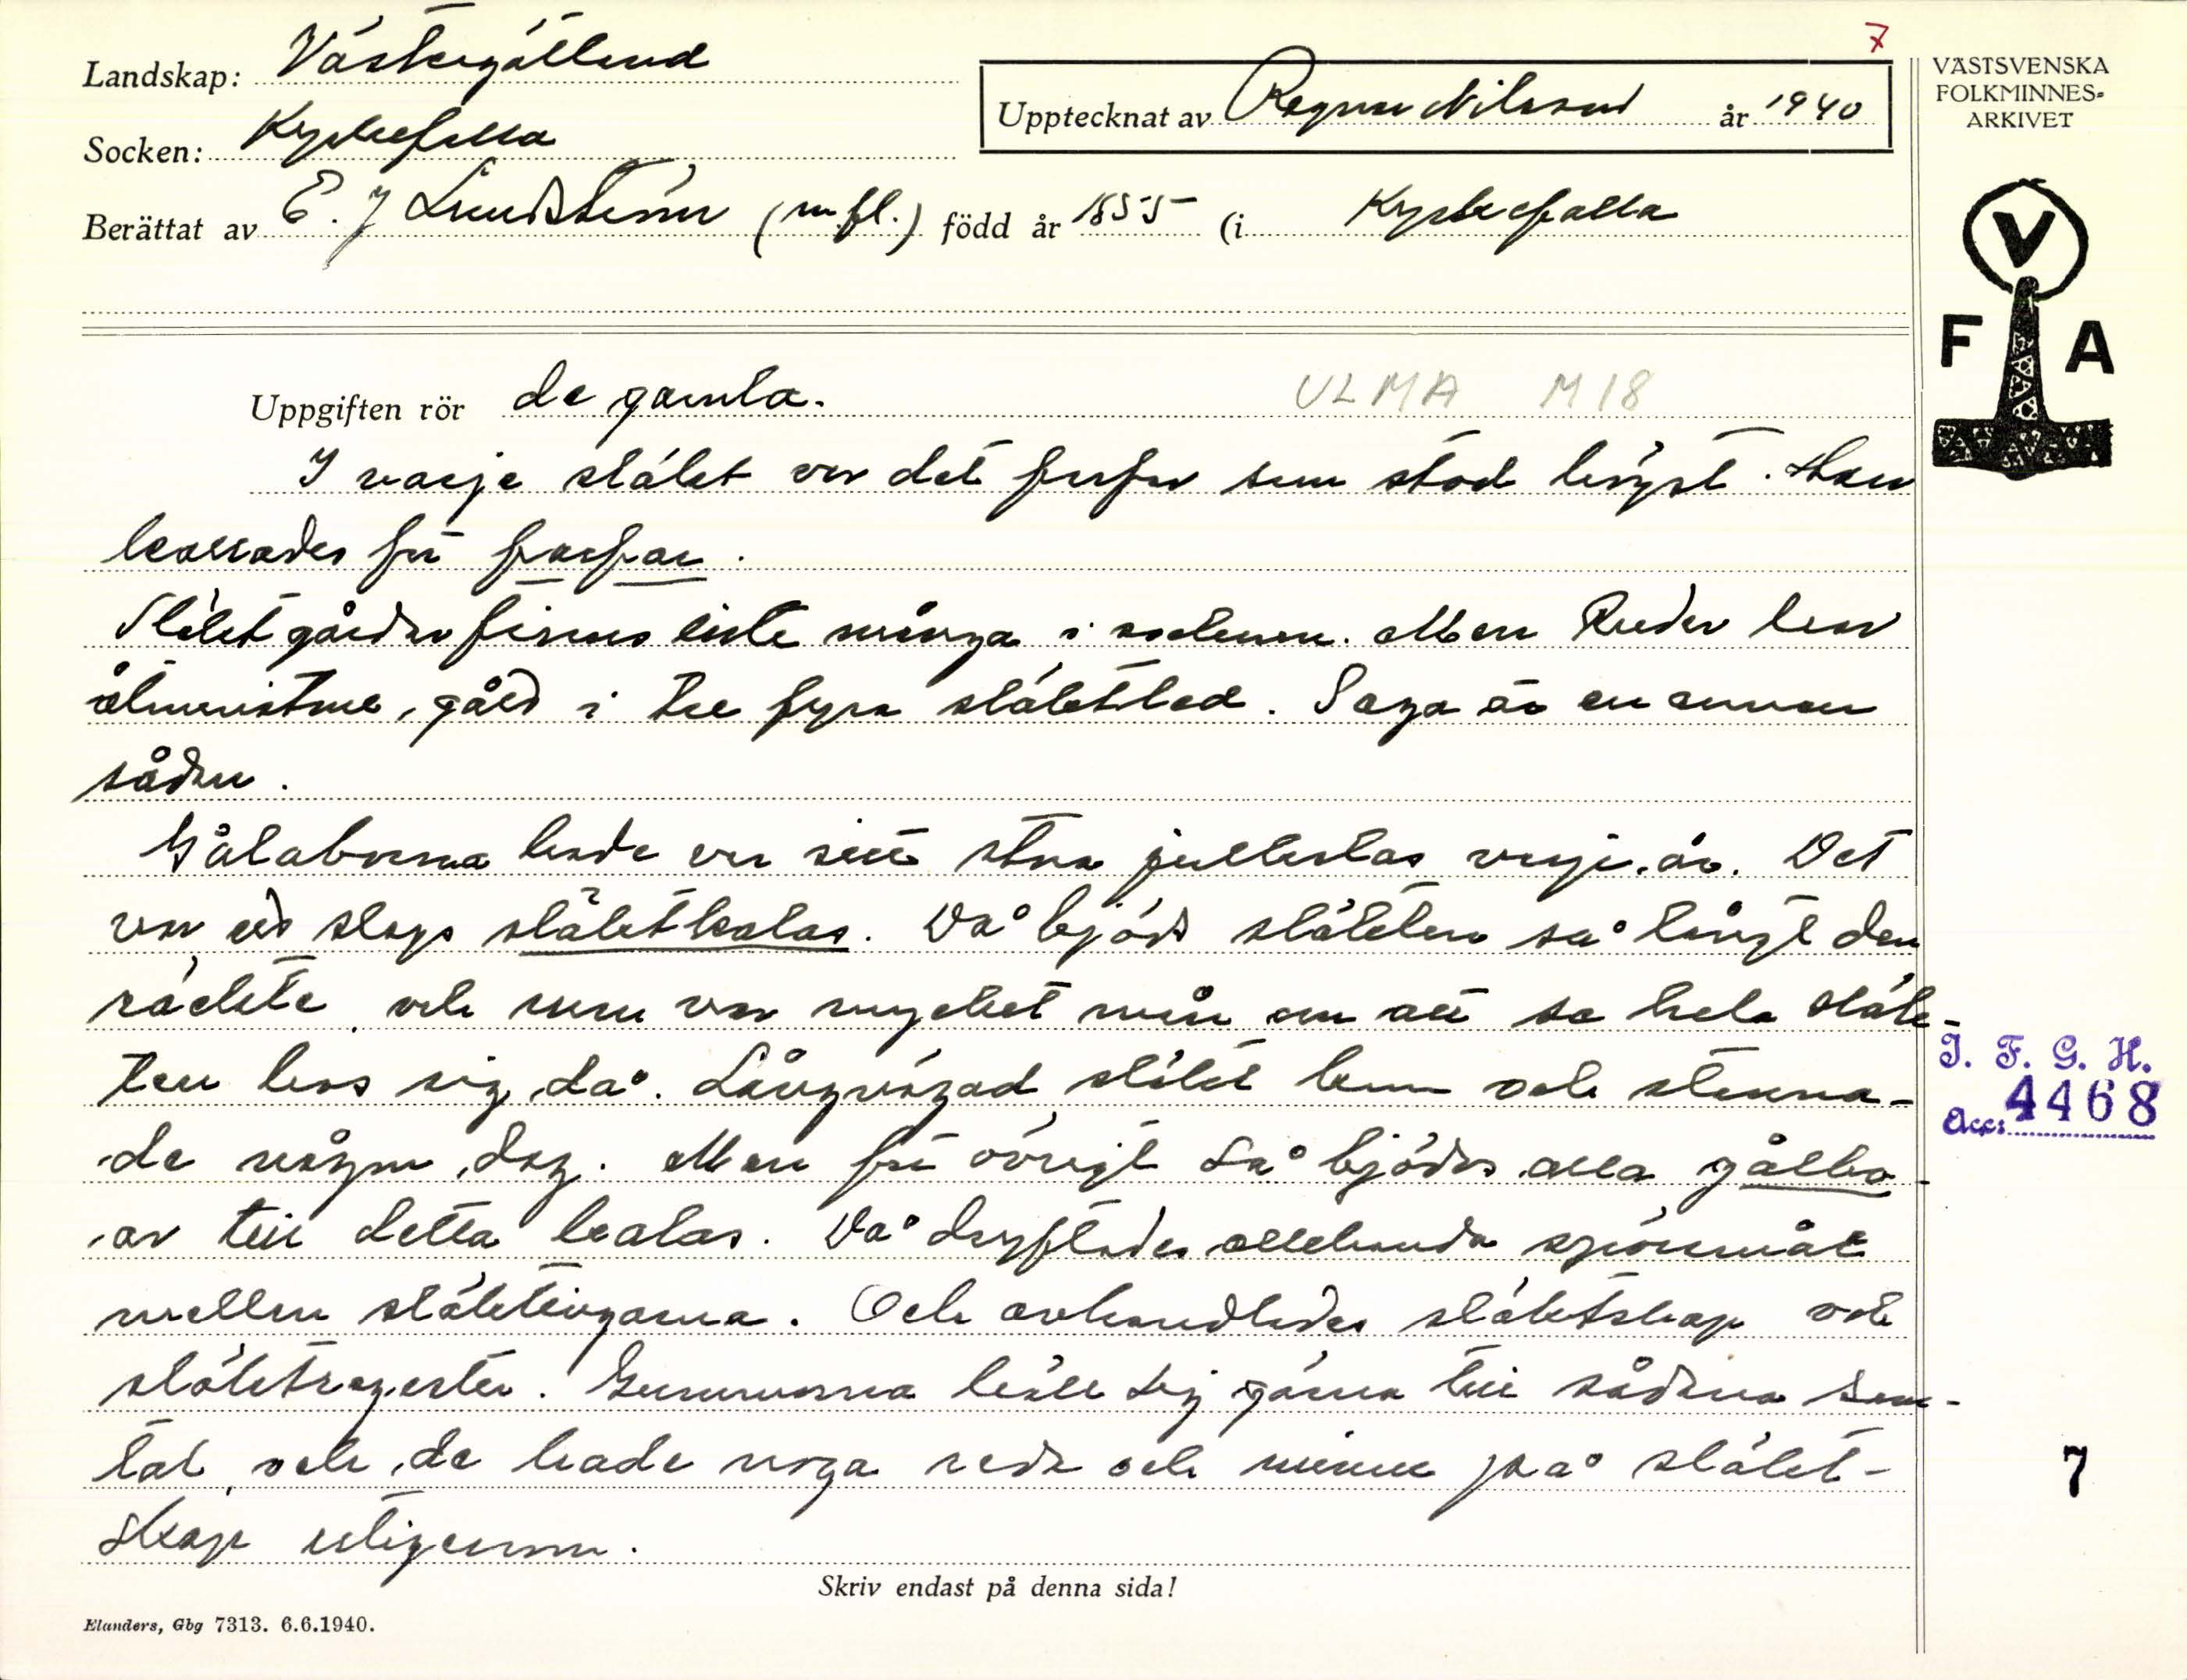 7
Landskap: Västergötland
Upptecknat av Ragnar Nilsson år 1940
VÄSTSVENSKA
FOLKMINNES-
ARKIVET
Socken: Kyrkefalla
Berättat av E. J Lundström (m.fl.) född år 1855 (i Kyrkefalla
V
F A
Uppgiften rör de gamla. ULMA M18
I varje släkt var det farfar som stod högst. Han
kallades för farfar.
Släktgårdar finns inte många i socknen. Men Ruder har
åtminstone gått i tre fyra släktled. Saga är en annan
sådan.
Gålaborna hade ju sitt stora julkalas varje år. Det
var ett slags släktkalas. Då bjöds släkten så långt den
räckte och man var mycket mån om att se hela släk-
ten hos sig då. Långväga släkt kom och stanna-
de någon dag. Men för övrigt så bjöds alla gålbo-
ar till detta kalas. Då dryftades allehanda spörsmål
mellan släktingarna. Och avhandlades släktskap och
släktregister. Gummorna höll sig gärna till sådana sam-
tal och de hade noga reda och minne på släkt-
skap utigenom.
I. F. G. H.
Acc: 4468
7
Skriv endast på denna sida!
Elanders, Gbg 7313. 6.6.1940.